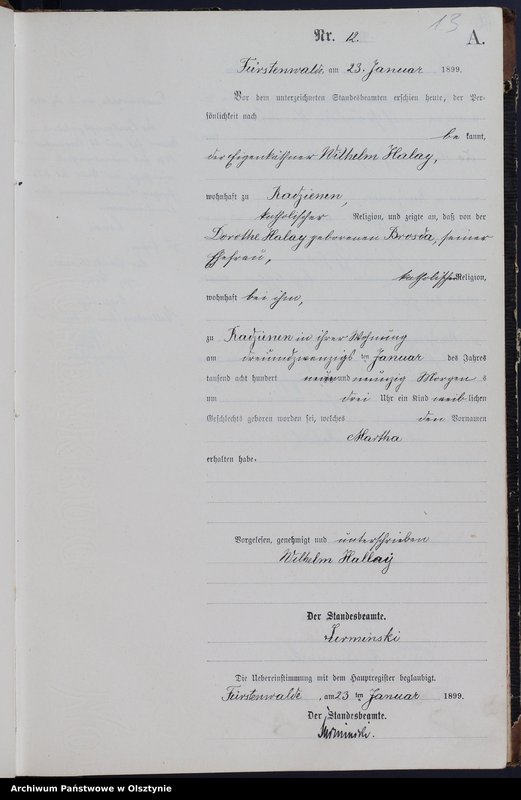 13
Nr. 12. A.
Fürstenwalde am 23. Januar 1899.
Vor dem unterzeichneten Standesbeamten erschien heute, der Per-
sönlichkeit nach
be kannt,
der Eigenkäthner Wilhelm Halay,
wohnhaft zu Radzienen,
katholischer Religion, und zeigte an, daß von der
Dorothe Halay geborenen Brosda, seiner
Ehefrau,
katholischer Religion,
wohnhaft bei ihm,
zu Radzienen in ihrer Wohnung
am dreiundzwanzigs ten Januar des Jahres
tausend acht hundert neun und neunzig Morgen s
um drei Uhr ein Kind weib lichen
Geschlechts geboren worden sei, welches den Vornamen
Martha
erhalten habe.
Vorgelesen, genehmigt und unterschrieben
Wilhelm Hallay
Der Standesbeamte.
Die Uebereinstimmung mit dem Hauptregister beglaubigt.
Fürstenwalde, am 23 ten Januar 1899.
Der Standesbeamte.
Archiwum Państwowe w Olsztynie